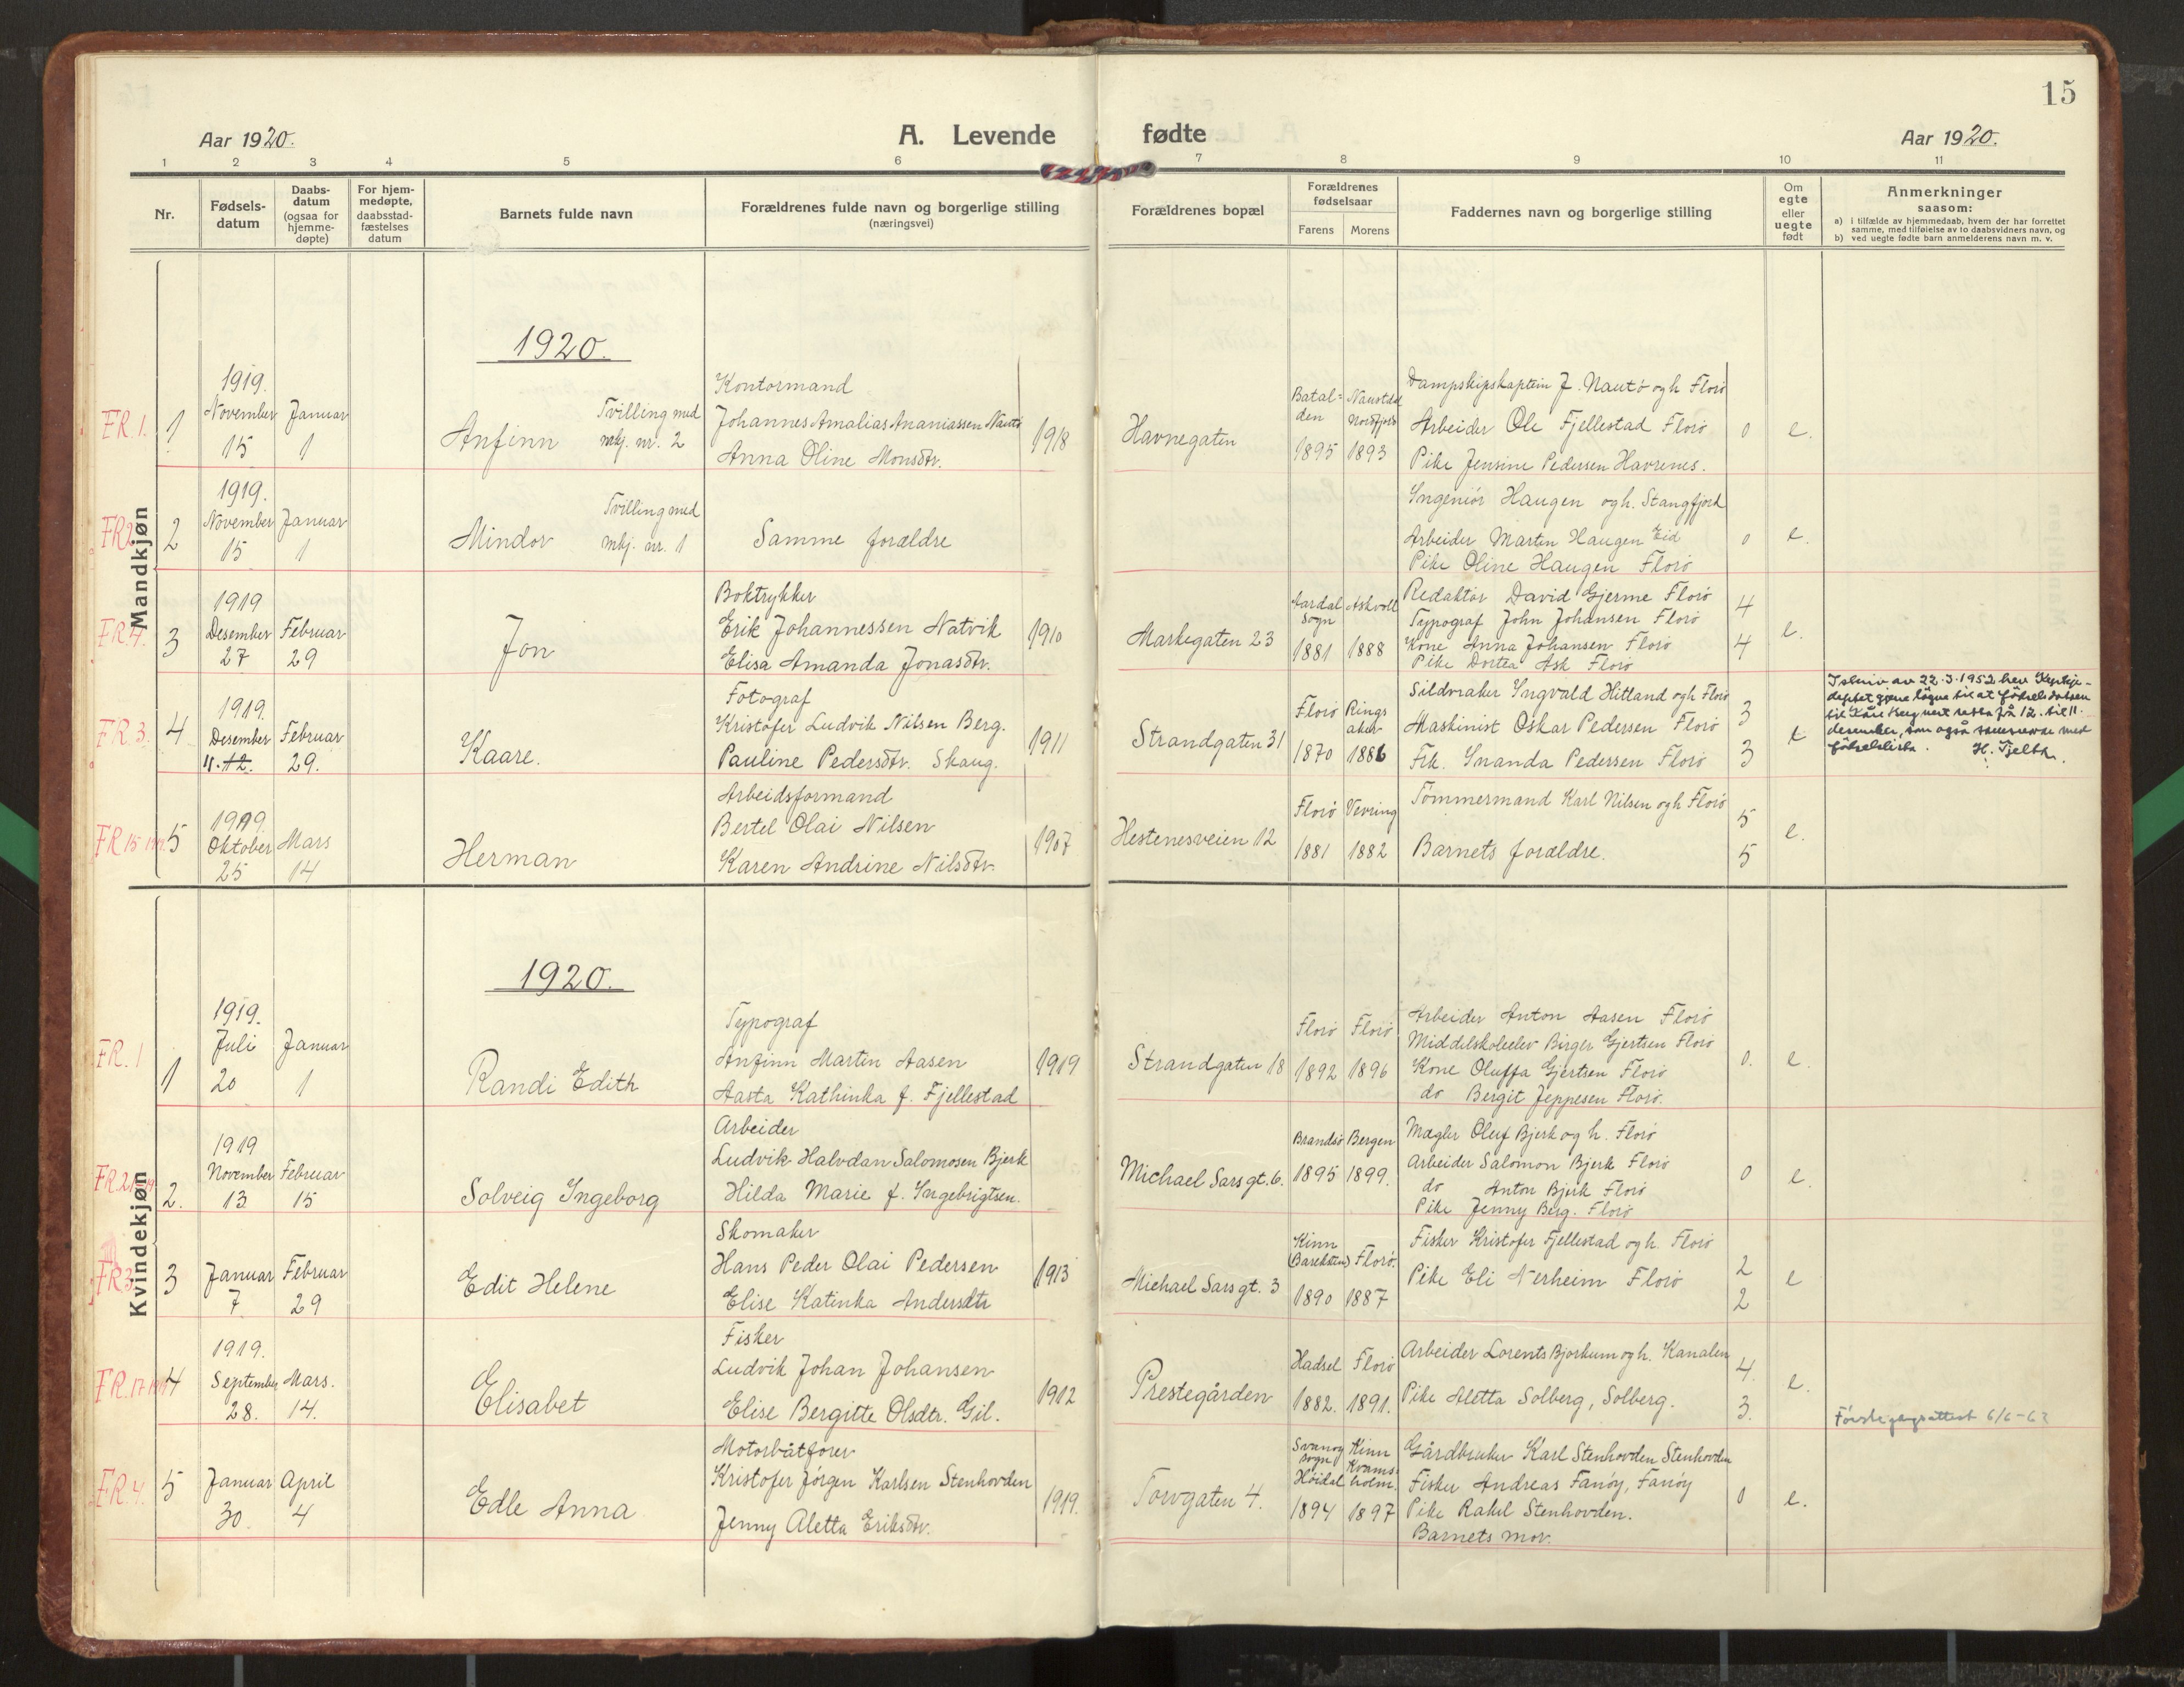 15
Aar 1920.
A. Levende fødte
Aar 1920.
1 2 3 4 5 6 7 8 9 10 11
Nr.
Fødsels-
datum
Daabs-
datum
(ogsaa for
hjemme-
døpte)
For hjem-
medøpte,
daabsstad-
fæstelses
datum
Barnets fulde navn
Forældrenes fulde navn og borgerlige stilling
(næringsvei)
Forældrenes bopæl
Forældrenes
fødselsaar
Farens Morens
Faddernes navn og borgerlige stilling
Om
egte
eller
uegte
født
Anmerkninger
saasom:
a) i tilfælde av hjemmedaab, hvem der har forrettet
samme, med tilføielse av to daabsvidners navn, og
b) ved uegte fødte barn anmelderens navn m. v.
Mandkjøn
1920.
FR. 1.
1
1919.
November
15
Januar
1
Anfinn
Tvilling med
mkj. nr. 2
Kontormand
Johannes Amalias Ananiassen Nautö
Anna Oline Monsdtr.
1918
Havnegaten
Batal=
den
1895
Naustdal
Nordfjord
1893
Dampskipskaptein J. Nautö og h Florö
Arbeider Ole Fjellestad Florö
Pike Jensine Pedersen Havrenes.
0
e.
FR 2
2
1919.
November
15
Januar
1
Mindor
Tvilling med
mkj. nr. 1
Samme forældre
Ingeniör Haugen og h. Stangfjord
Arbeider Martin Haugen Eid
Pike Oline Haugen Florö
0
e.
FR. 4.
3
1919
Desember
27
Februar
29
Jon
Boktrykker
Erik Johannessen Natvik
Elisa Amanda Jonasdtr.
1910
Markegaten 23
Aardal
Sogn
1881
Askvoll
1888
Redaktör David Gjerme Florö
Typograf John Johansen Florö
Kone Anna Johansen Florö
Pike Dortea Ask Florö
4
4
e.
FR 3.
4
1919.
Desember
11. 12.
Februar
29.
Kaare.
Fotograf
Kristofer Ludvik Nilsen Berg.
Pauline Pedersdtr. Skaug.
1911
Strandgaten 31
Florö
1870
Rings
aker
1886
Sildvraker Ingvald Hitland og h Florö
Maskinist Oskar Pedersen Florö
Frk. Inanda Pedersen Florö
3
3
e
I skriv av 22.3.1952 hev Kyrkje-
til Kåre Berg vert retta frå 12. til 11.
desember, som også med
fødselslista. H. Tjelth.
FR 15 1919.
5
1919.
Oktober
25
Mars
14
Herman
Arbeidsformand
Bertel Olai Nilsen
Karen Andrine Nilsdtr.
1907
Hestenesveien 12
Florö
1881
Vevring
1882
Tömmermand Karl Nilsen og h Florö
Barnets forældre.
5
5
e.
Kvindekjøn
1920.
FR. 1
1
1919.
Juli
20
Januar
1
Randi Edith
Typograf
Anfinn Martin Aasen
Aasta Kathinka f. Fjellestad
1919
Strandgaten 18
Florö
1892
Florö
1896
Arbeider Anton Aasen Florö
Middelskoleelev Birger Gjertsen Florö
Kone Oluffa Gjertsen Florö
do Bergit Jeppesen Florö.
0.
e.
FR 21 1919
2.
1919
November
13
Februar
15
Solveig Ingeborg
Arbeider
Ludvik Halvdan Salomosen Bjerk
Hilda Marie f. Ingebrigtsen.
Michael Sars gt. 6.
Brandsö
1895
Bergen
1899.
Mægler Oluf Bjerk og h. Florö
Arbeider Salomon Bjerk Florö
do Anton Bjerk Florö
Pike Jenny Berg. Florö
0
e.
FR 3
3
Januar
7
Februar
29
Edit Helene
Skomaker
Hans Peder Olai Pedersen
Elise Katinka Andersdtr
1913
Michael Sars gt. 3
Kinn
(Barekstad)
1890
Florö.
1887
Fisker Kristofer Fjellestad og h. Florö
Pike Eli Nerheim Florö
2
2
e
FR. 17 1919
4
1919.
September
28.
Mars.
14.
Elisabet
Fisker
Ludvik Johan Johansen
Elise Bergitte Olsdtr. Gil.
1912
Prestegården
Hadsel
1882.
Florö
1891.
Arbeider Lorents Bjorkum og h. Kanalen
Pike Aletta Solberg, Solberg.
4.
3.
e.
FR. 4.
5
Januar
30.
April
4
Edle Anna
Motorbåtförer
Kristofer Jörgen Karlsen Stenhovden
Jenny Aletta Eriksdtr.
1919.
Torvgaten 4.
Svanöy
sogn
Höidal
1894
Kinn
Kvams-
holm.
1897
Gårdbruker Karl Stenhovden Stenhovden
Fisker Andreas Fanöy, Fanöy
Pike Rakel Stenhovden.
Barnets mor.
0
e.